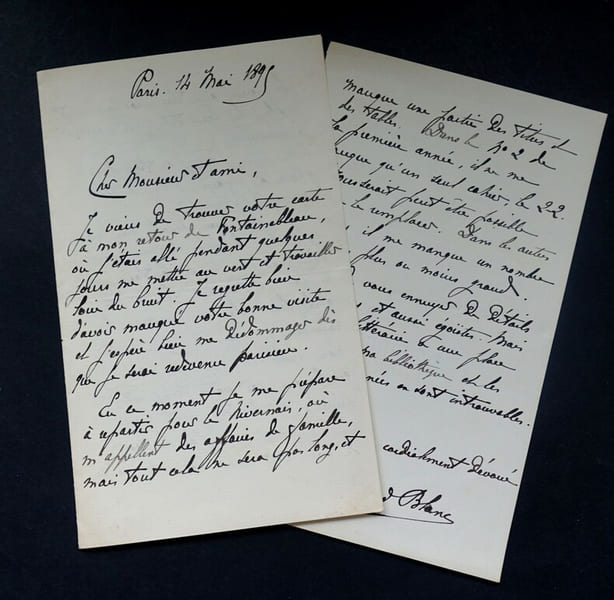 Paris. 14 Mai 1895
Cher Monsieur et ami,
Je viens de trouver votre carte
à mon retour de Fontainebleau,
où j'étais allé pendant quelques
jours me mettre au vert et travailler
loin du bruit. Je regrette bien
d'avoir manqué votre bonne visite
et j'espère bien me dédommager dès
que je serai redevenu parisien.
En ce moment je me prépare
à repartir pour le Nivernais, où
m'appellent des affaires de famille,
mais tout cela ne sera pas long, et
manque une partie des titres et
des tables. Dans le No 2 de
la première année, il ne me
manque qu'un seul cahier, le 22.
serait peut être possible
le remplacer. Dans les autres
il me manque un nombre
plus ou moins grand.
vous ennuyer de détails
et aussi égoïstes. Mais
littéraire a une place
ma bibliothèque et les
en sont introuvables.
cordialement dévoué
d Blanc